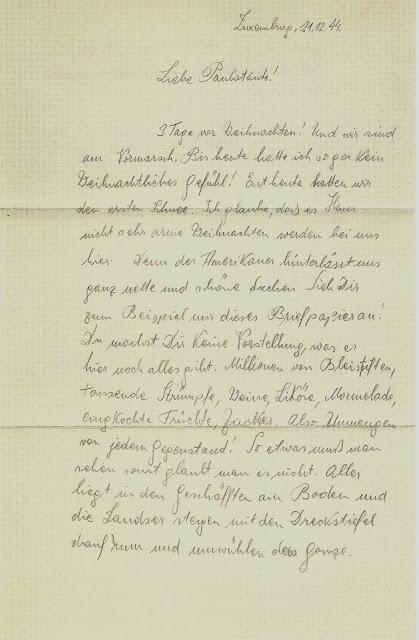 Luxemburg, 21.12.44.
Liebe Paulatante!
3 Tage vor Weihnachten! Und wir sind
am Vormarsch. Bis heute hatte ich so gar kein
Weihnachtliches Gefühl! Erst heute hatten wir
den ersten Schnee. Ich glaube, dass es Heuer
nicht sehr arme Weihnachten werden bei uns
hier. Denn der Amerikaner hinterlässt uns
ganz nette und schöne Sachen. Sieh Dir
zum Beispiel nur dieses Briefpapier an!
Du machst Dir keine Vorstellung, was es
hier noch alles gibt. Millionen von Bleistiften,
tausende Strümpfe, Weine, Liköre, Marmelade,
eingkochte Früchte, Zucker. Also Unmengen
von jedem Gegenstand! So etwas muß man
sehen sonst glaubt man es nicht. Alles
liegt in den Geschäften am Boden und
die Landser steigen mit den Dreckstiefel
drauf rum und umwühlen das Ganze.